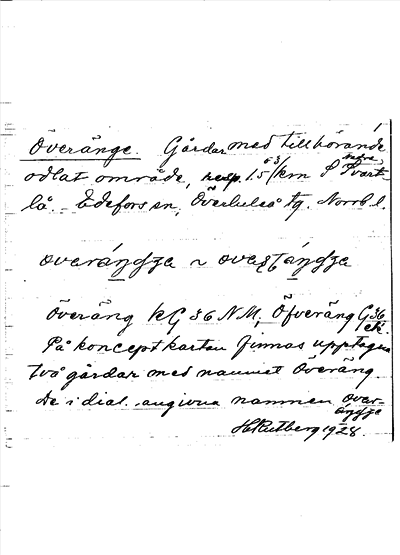 Överänge. Gårdar med tillhörande
odlat område, resp. 1.5 km S Svart-
lå. Edefors sn, Överluleå tg. Norrb. l.
överäng KG 36 NM, Öfveräng G 36
etc.
På konceptkartan finnas upptagna
två gårdar med namnet Överäng.
De i dial. angivna namnen
H. Rutberg 1928.